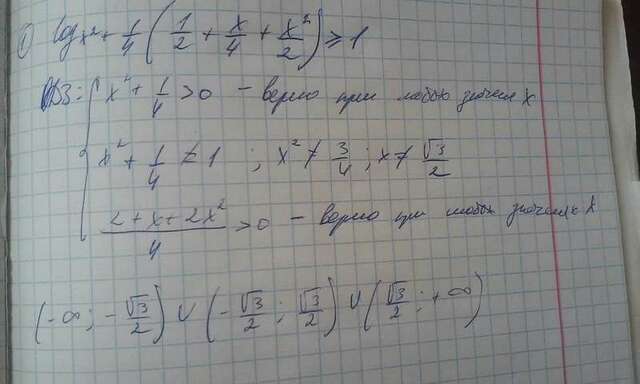 ① log x² + 1/4 (1/2 + x/4 + x²/2) ≥ 1
ОДЗ: { x² + 1/4 > 0 – верно при любом значен x
x² + 1/4 ≠ 1 ; x² ≠ 3/4 ; x ≠ √3/2
(2 + x + 2x²)/4 > 0 – верно при любом значен x
(-∞; -√3/2) ∪ (-√3/2; √3/2) ∪ (√3/2; +∞)